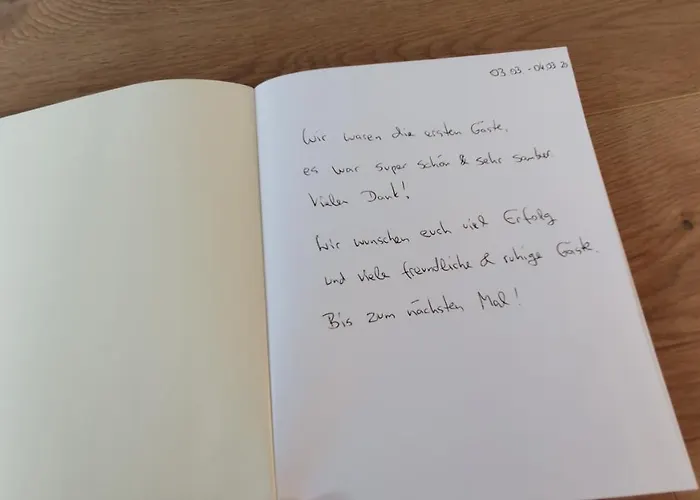 03.03. - 04.03.20
Wir waren die ersten Gäste,
es war super schön & sehr sauber.
Vielen Dank!
Wir wünschen euch viel Erfolg
und viele freundliche & ruhige Gäste.
Bis zum nächsten Mal!